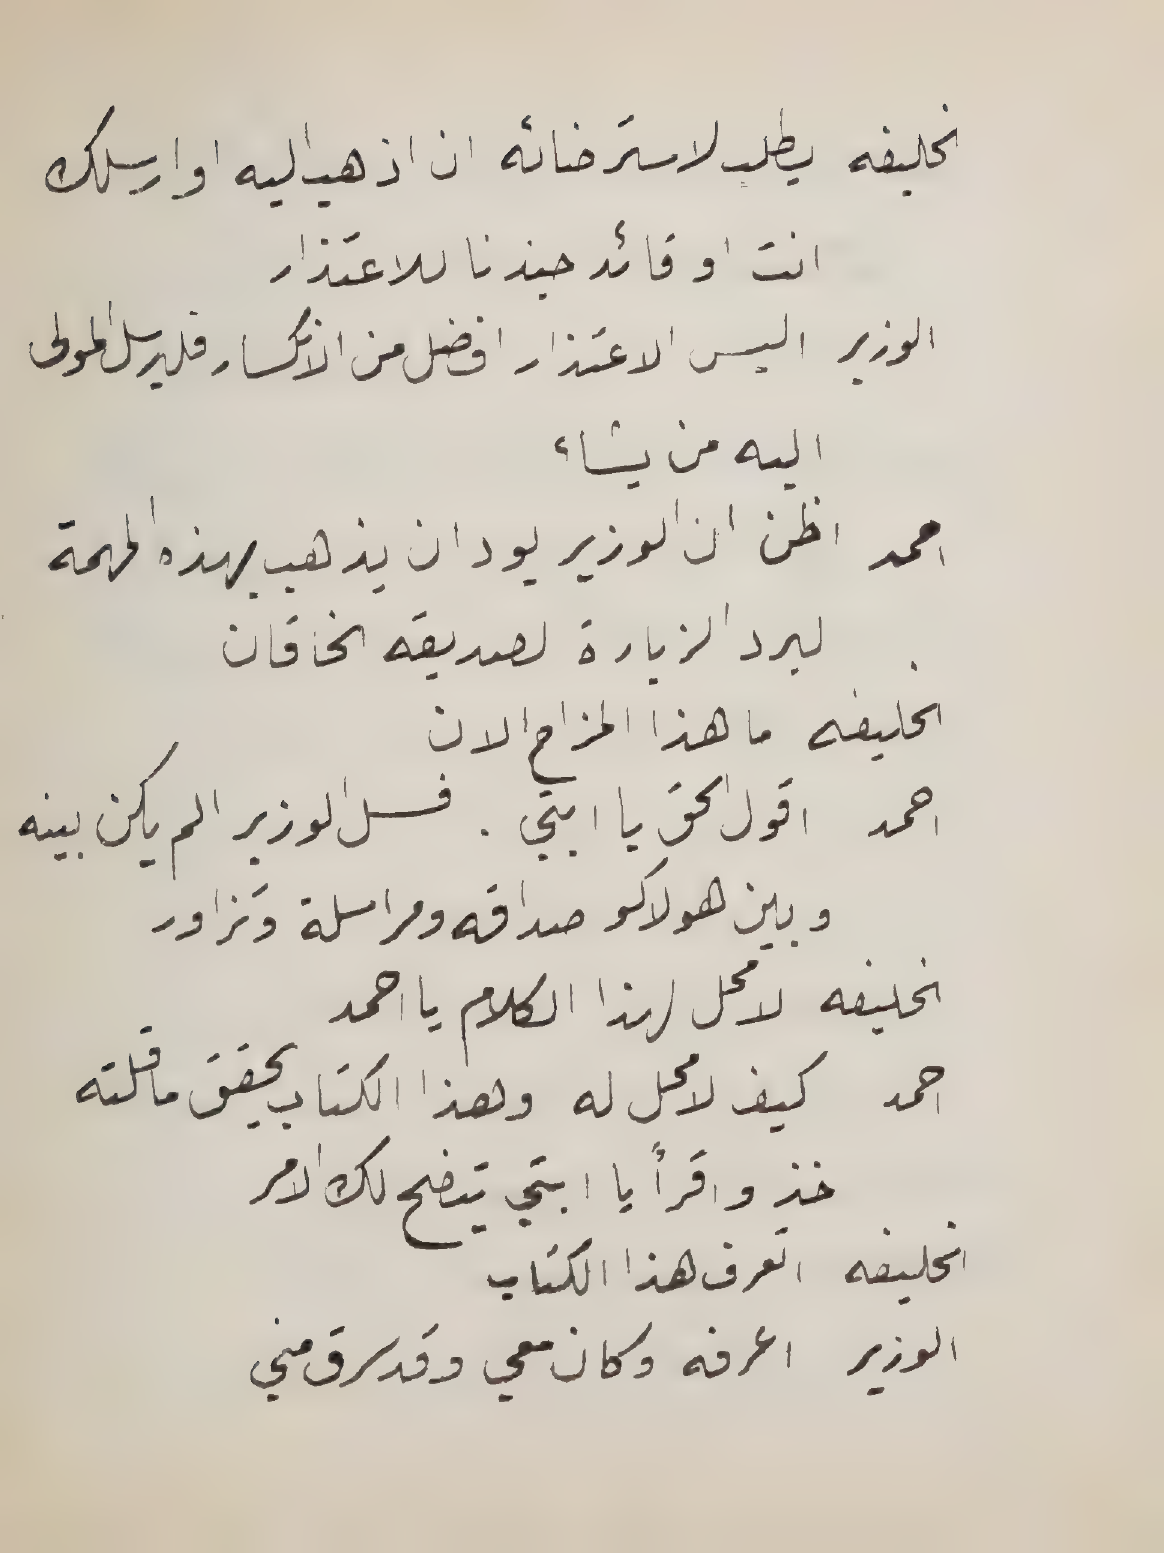 الخليفه يطلب لاسترضائه ان اذهب اليه او ارسلك
انت او قائد جندنا للاعتذار
الوزير اليس الاعتذار افضل من الانكسار فليرسل المولى
اليه من يشاء
احمد اظن ان الوزير يود ان يذهب بهذه المهمة
ليرد الزيارة لصديقه الخاقان
الخليفه ما هذا المزاح الان
احمد اقول الحق يا ابتي . فسل الوزير الم يكن بينه
وبين هولاكو صداقه ومراسلة وتزاور
الخليفه لا محل لهذا الكلام يا احمد
احمد كيف لا محل له وهذا الكتاب يحقق ما قلته
خذ واقرأ يا ابتي يتضح لك الامر
الخليفه اتعرف هذا الكتاب
الوزير اعرفه وكان معي وقد سرق مني